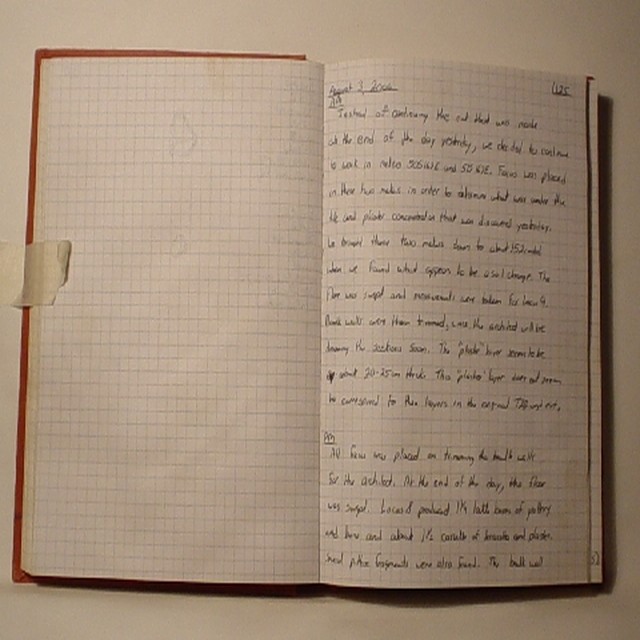 August 3, 2000 L25
AM
Instead of continuing the cut that was made
at the end of the day yesterday, we decided to continue
to work in and Focus was placed
in these two in order to determine what was under the
tile and plaster concentration that was discovered yesterday.
We brought these two down to about
when we found what appears to be a soil change. The
floor was swept and measurements were taken for locus 9.
Baulk walls were then trimmed, since the architect will be
drawing the sections soon. The "plaster" layer seems to be
about 20-25cm thick. This "plaster" layer does not seem
to correspond to the layers in the original
PM
All focus was placed on trimming the baulk walls
for the architect. At the end of the day, the floor
was swept. Locus 8 produced 1½ of pottery
and bone, and about 1½ of and plaster.
Several fragments were also found. The baulk wall